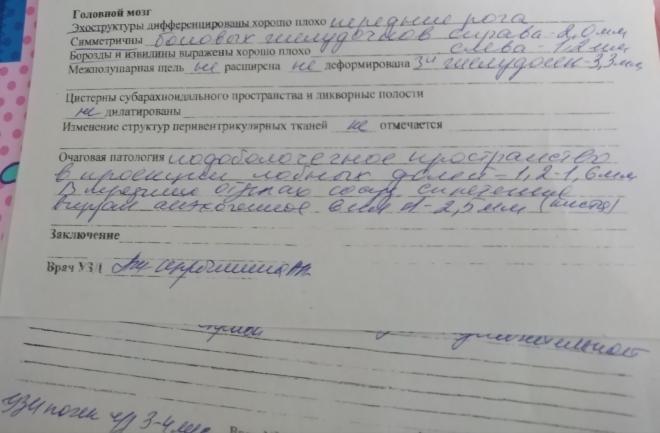 Головной мозг
Эхоструктуры дифференцированы хорошо плохо передние рога
Симметричны боковых желудочков справа - 2,0 мм
Борозды и извилины выражены хорошо плохо слева - 1,2 мм
Межполушарная щель не расширена не деформирована 3й желудочек - 3,3 мм
Цистерны субарахноидального пространства и ликворные полости
не дилатированы
Изменение структур перивентрикулярных тканей не отмечается
Очаговая патология подоболочечное пространство
в проекции лобных долей = 1,2-1,6 мм
В сосуд. сплетение
анэхогенное d - 2,5 мм (киста)
Заключение
Врач УЗД
УЗИ почек 3-4